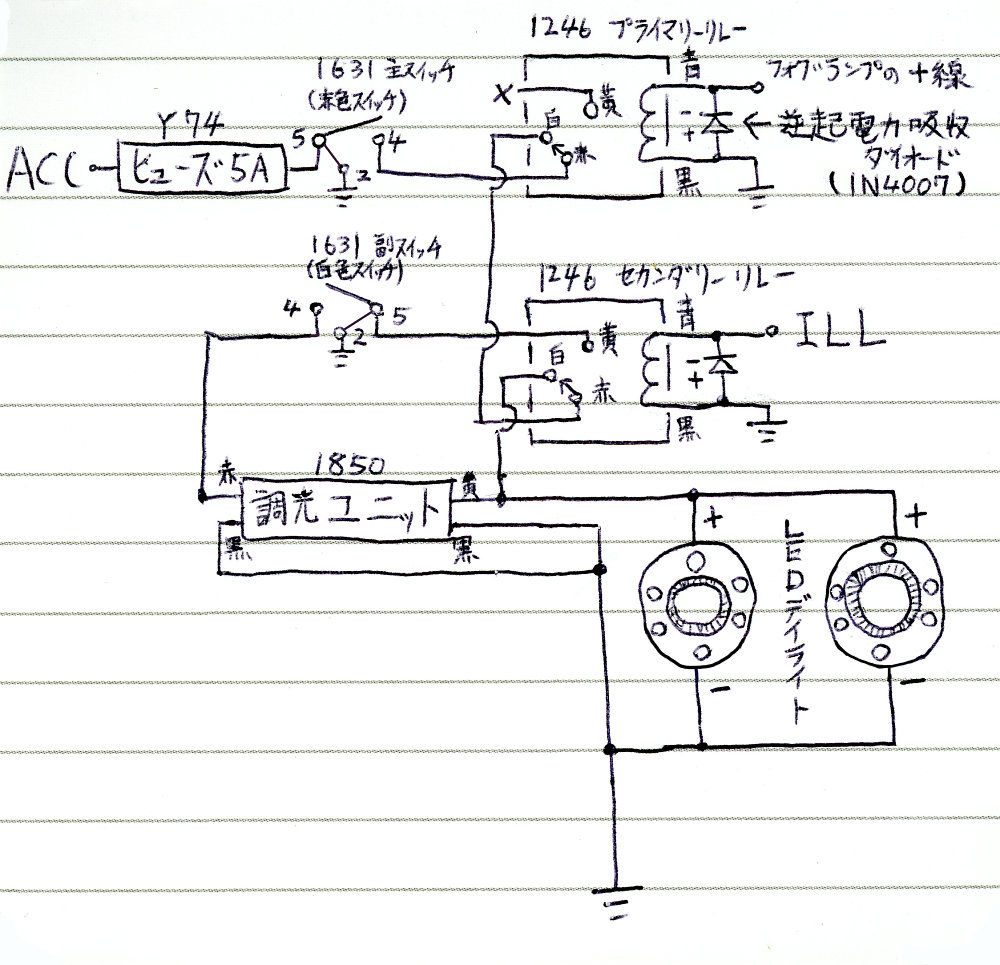 1246 プライマリーリレー
1631 主スイッチ
(赤色スイッチ)
青
フォグランプの+線
X
黄
Y74
白
-
+
← 逆起電力吸収
ダイオード
(1N4007)
5
4
赤
ACC
ヒューズ5A
2
黒
1631 副スイッチ
(白色スイッチ)
1246 セカンダリーリレー
4
5
青
2
黄
ILL
白
-
+
赤
黒
1850
赤
調光ユニット
黄
黒
黒
+
+
LEDデイライト
-
-